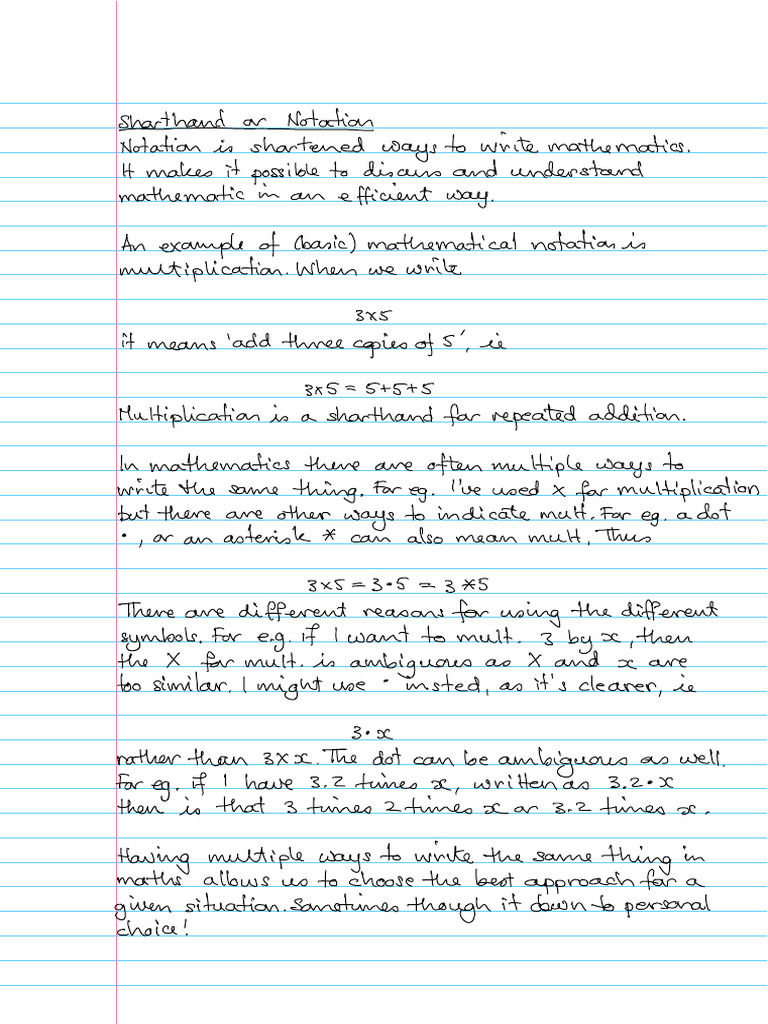 Shorthand or Notation
Notation is shortened ways to write mathematics.
It makes it possible to discuss and understand
mathematic in an efficient way.
An example of (basic) mathematical notation is
multiplication. When we write
3×5
it means 'add three copies of 5', ie
3×5 = 5+5+5
Multiplication is a shorthand for repeated addition.
In mathematics there are often multiple ways to
write the same thing. For eg. I've used × for multiplication
but there are other ways to indicate mult. For eg. a dot
·, or an asterisk * can also mean mult. Thus
3×5 = 3·5 = 3*5
There are different reasons for using the different
symbols. For e.g. if I want to mult. 3 by x, then
the × for mult. is ambiguous as × and x are
too similar. I might use · insted, as it's clearer, ie
3·x
rather than 3×x. The dot can be ambiguous as well.
For eg. if I have 3.2 times x, written as 3.2·x
then is that 3 times 2 times x or 3.2 times x.
Having multiple ways to write the same thing in
maths allows us to choose the best approach for a
given situation. Sometimes though it down to personal
choice!